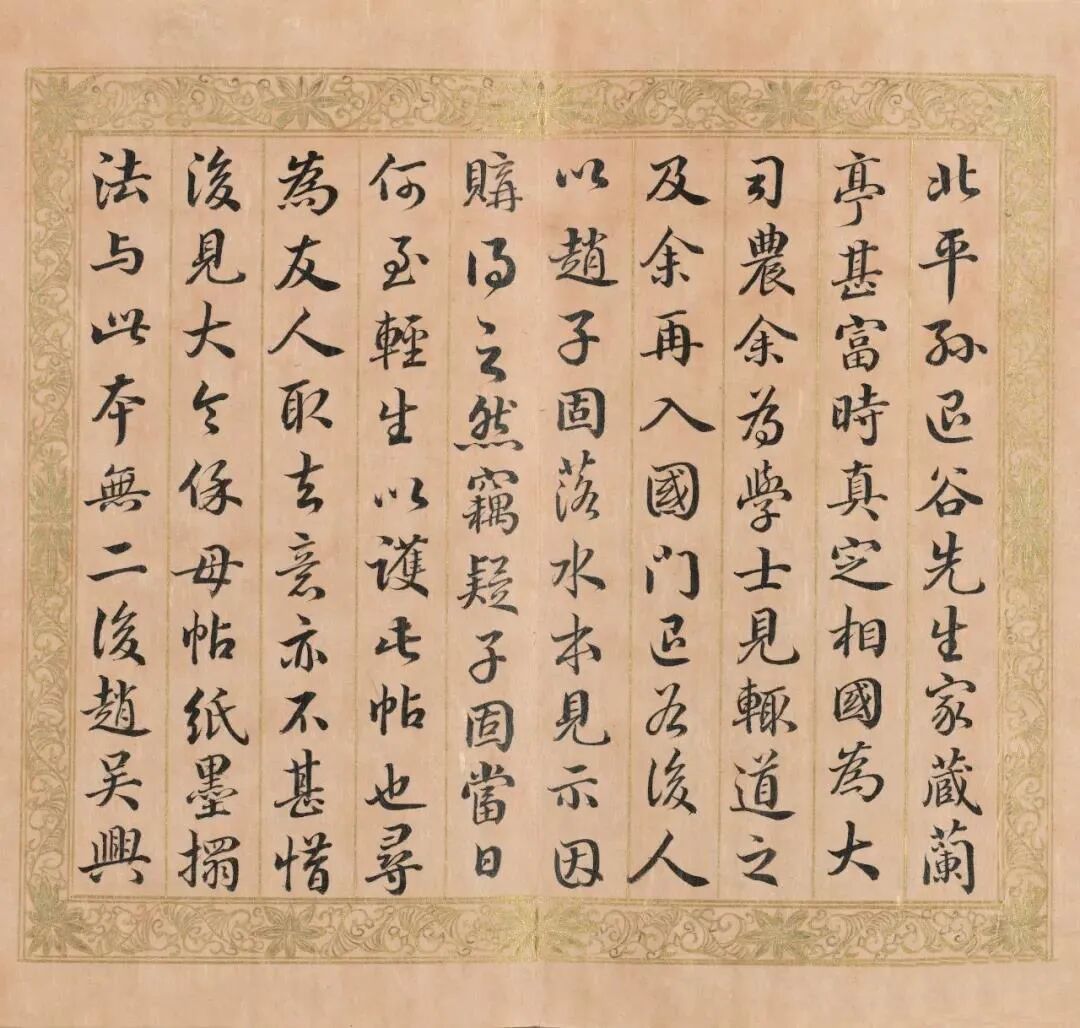 北平孫退谷先生家蔵蘭
亭甚富時真定相國為大
司農余為學士見輒道之
及余再入國门退谷後人
以趙子固落水本見示因
購得之然竊疑子固當日
何至輕生以護此帖也尋
為友人取去意亦不甚惜
後見大令保母帖紙墨搨
法与此本無二後趙吳興